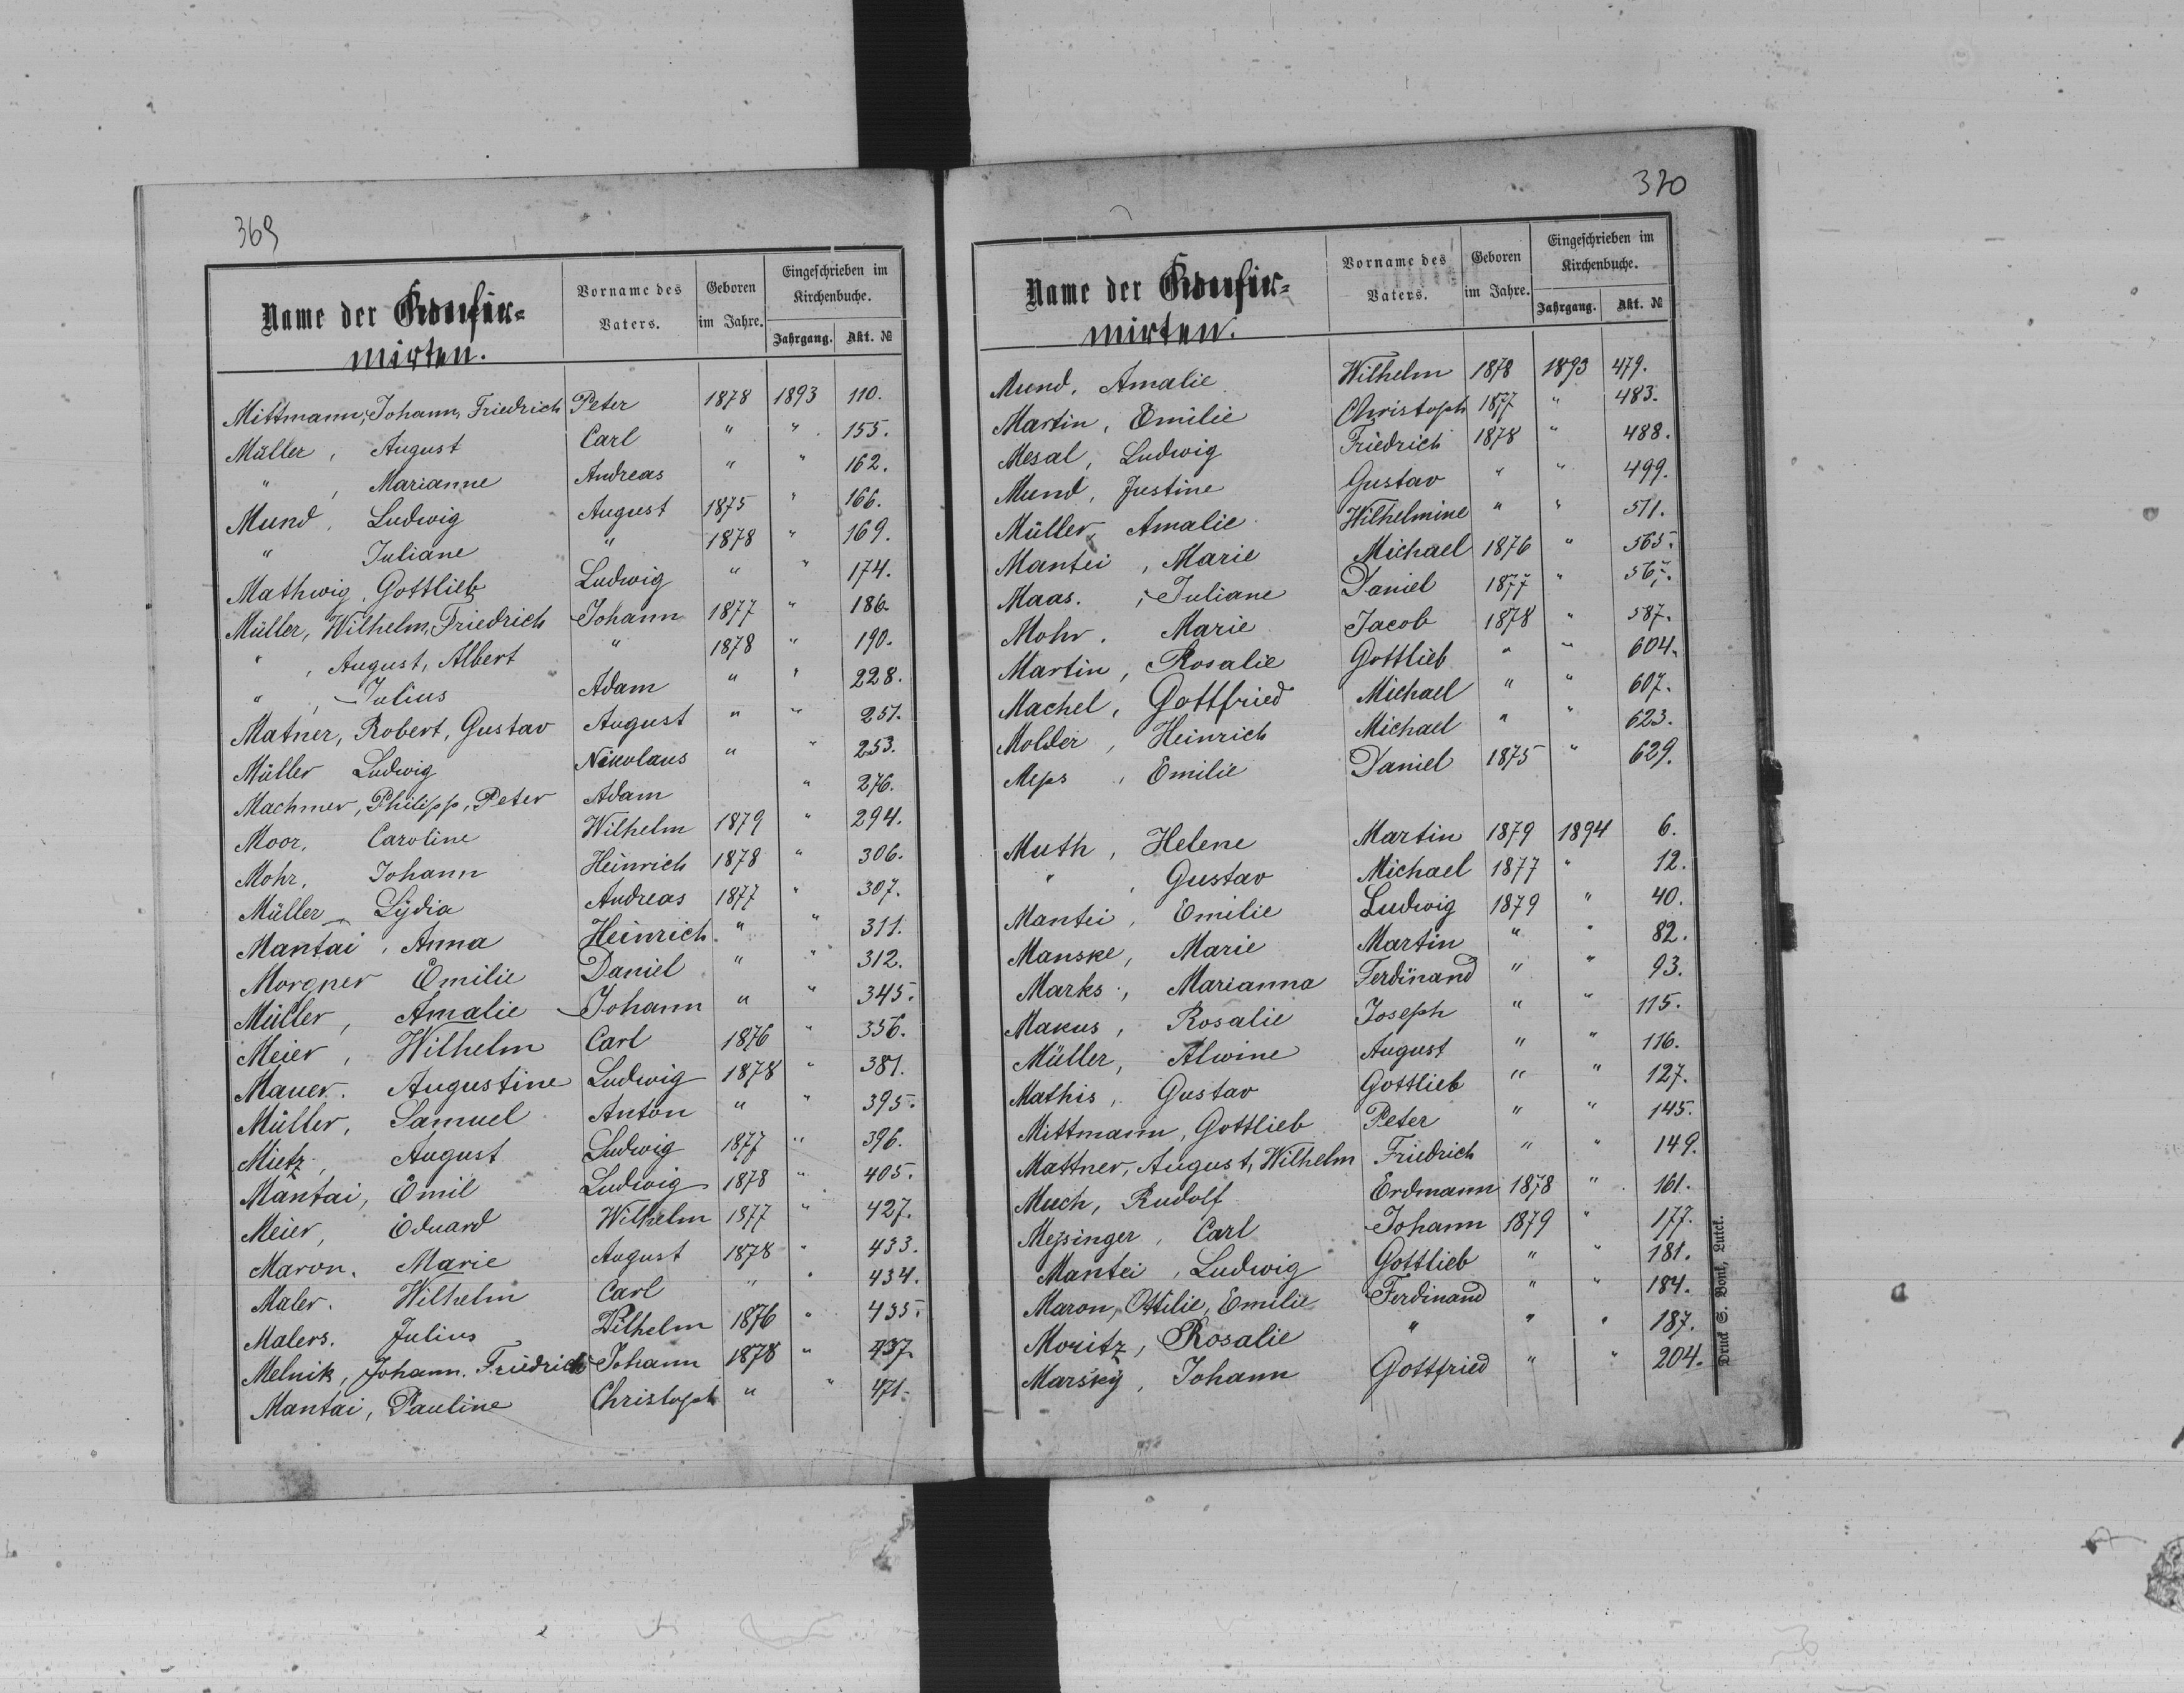 369
Name der Konfir=
mirten.
Vorname des
Vaters.
Geboren
im Jahre.
Eingeschrieben im
Kirchenbuche.
Jahrgang. Akt. №
Mittmann, Johann, Friedrich Peter 1878 1893 110.
Müller, August Carl " " 155.
" , Marianne Andreas " " 162.
Mund, Ludwig August 1875 " 166.
" Juliane " 1878 " 169.
Mathwig, Gottlieb Ludwig " " 174.
Müller, Wilhelm, Friedrich Johann 1877 " 186.
" , August, Albert " 1878 " 190.
" , Julius Adam " " 228.
Matner, Robert, Gustav August " " 251.
Müller Ludwig Nikolaus " " 253.
Machmer, Philipp, Peter Adam " 276.
Moor, Caroline Wilhelm 1879 " 294.
Mohr, Johann Heinrich 1878 " 306.
Müller, Lydia Andreas 1877 " 307.
Mantai, Anna Heinrich " " 311.
Morgner Emilie Daniel " " 312.
Müller, Amalie Johann " " 345.
Meier, Wilhelm Carl 1876 " 356.
Mauer. Augustine Ludwig 1878 " 381.
Müller, Samuel Anton " " 395.
Mietz, August Ludwig 1877 " 396.
Mantai, Emil Ludwig 1878 " 405.
Meier, Eduard Wilhelm 1877 " 427.
Maron. Marie August 1878 " 433.
Maler. Wilhelm Carl " " 434.
Malers. Julius Wilhelm 1876 " 435.
Melnik, Johann. Friedrich Johann 1878 " 437.
Mantai, Pauline Christoph " " 471.
370
Name der Konfir=
mirten.
Vorname des
Vaters.
Geboren
im Jahre.
Eingeschrieben im
Kirchenbuche.
Jahrgang. Akt. №
Mund, Amalie Wilhelm 1878 1893 479.
Martin, Emilie Christoph 1877 " 483.
Mesal, Ludwig Friedrich 1878 " 488.
Mund, Justine Gustav " " 499.
Müller, Amalie Wilhelmine " " 511.
Mantei, Marie Michael 1876 " 565.
Maas. , Juliane Daniel 1877 "
Mohr. Marie Jacob 1878 " 587.
Martin, Rosalie Gottlieb " " 604.
Machel, Gottfried Michael " " 607.
Molder, Heinrich Michael " " 623.
Meſs, Emilie Daniel 1875 " 629.
Muth, Helene Martin 1879 1894 6.
" , Gustav Michael 1877 " 12.
Mantei, Emilie Ludwig 1879 " 40.
Manske, Marie Martin " " 82.
Marks, Marianna Ferdinand " " 93.
Makus, Rosalie Joseph " " 115.
Müller, Alwine August " " 116.
Mathis, Gustav Gottlieb " " 127.
Mittmann, Gottlieb Peter " " 145.
Mattner, August, Wilhelm Friedrich " " 149.
Much, Rudolf Erdmann 1878 " 161.
Meſsinger, Carl Johann 1879 " 177.
Mantei, Ludwig Gottlieb " " 181.
Maron, Ottilie, Emilie Ferdinand " " 184.
Moritz, Rosalie " " " 187.
Marsky, Johann Gottfried " " 204.
Druck S. Bonk, Luck.